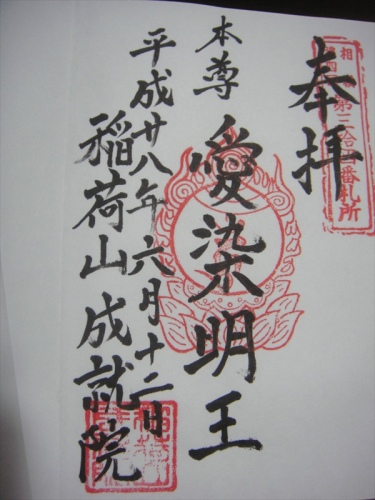 奉拝
本尊
愛染明王
平成廿八年六月十二日
稲荷山成就院